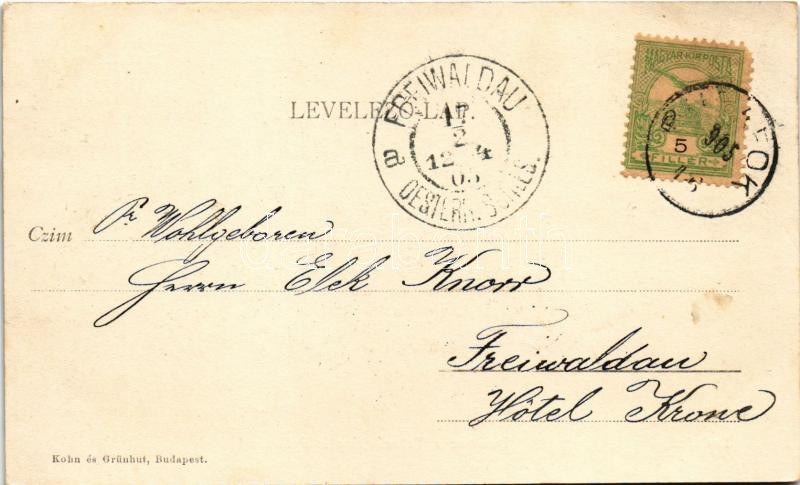 MAGYAR KIR. POSTA
5
FILLER
905
FOK
FREIWALDAU
17
2
12 4
05
a
OESTERR. SCHLES.
LEVELEZŐ-LAP.
Czim
Wohlgeboren
Herrn Elek Knorr
Freiwaldau
Hôtel Krone
Kohn és Grünhut, Budapest.